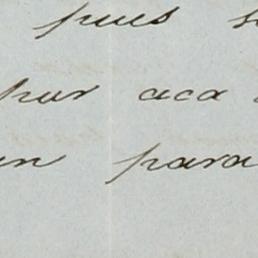 pues
por aca
para